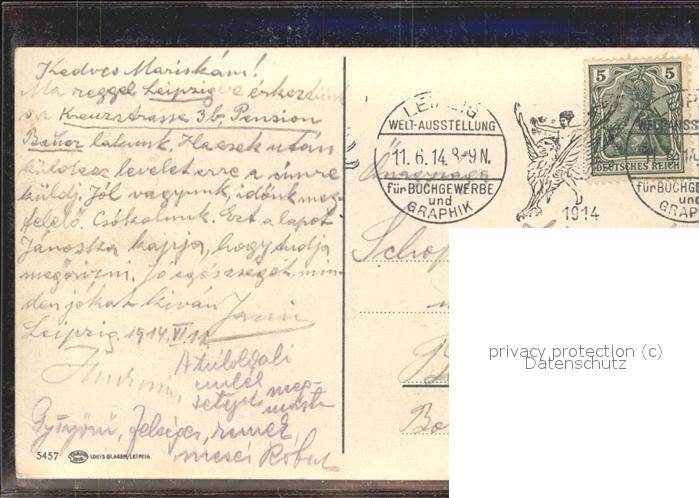 Kedves Mariskám!
Ma reggel Leipzigbe érkeztünk
s a Kreuzstrasse 3b, Pension
Bauer lakunk. Ha ezek után
küldesz levelet erre a címre
küldj. Jól vagyunk, időnk meg-
felelő. Csókolunk. Ezt a lapot
Jánoska kapja, hogy tudja
megőrizni. Jó egészséget min-
den jókat kíván
Leipzig. 1914. VI. 11.
A túloldali
emlék
meg-
Gyönyörű, felséges, remek,
mesés
5457 LOUIS GLASER, LEIPZIG.
LEIPZIG
WELT-AUSSTELLUNG
11.6.14. 8-9 N.
für BUCHGEWERBE
und
GRAPHIK
1914
5 5
DEUTSCHES REICH
für BUCHG
und
GRAP
privacy protection (c)
Datenschutz